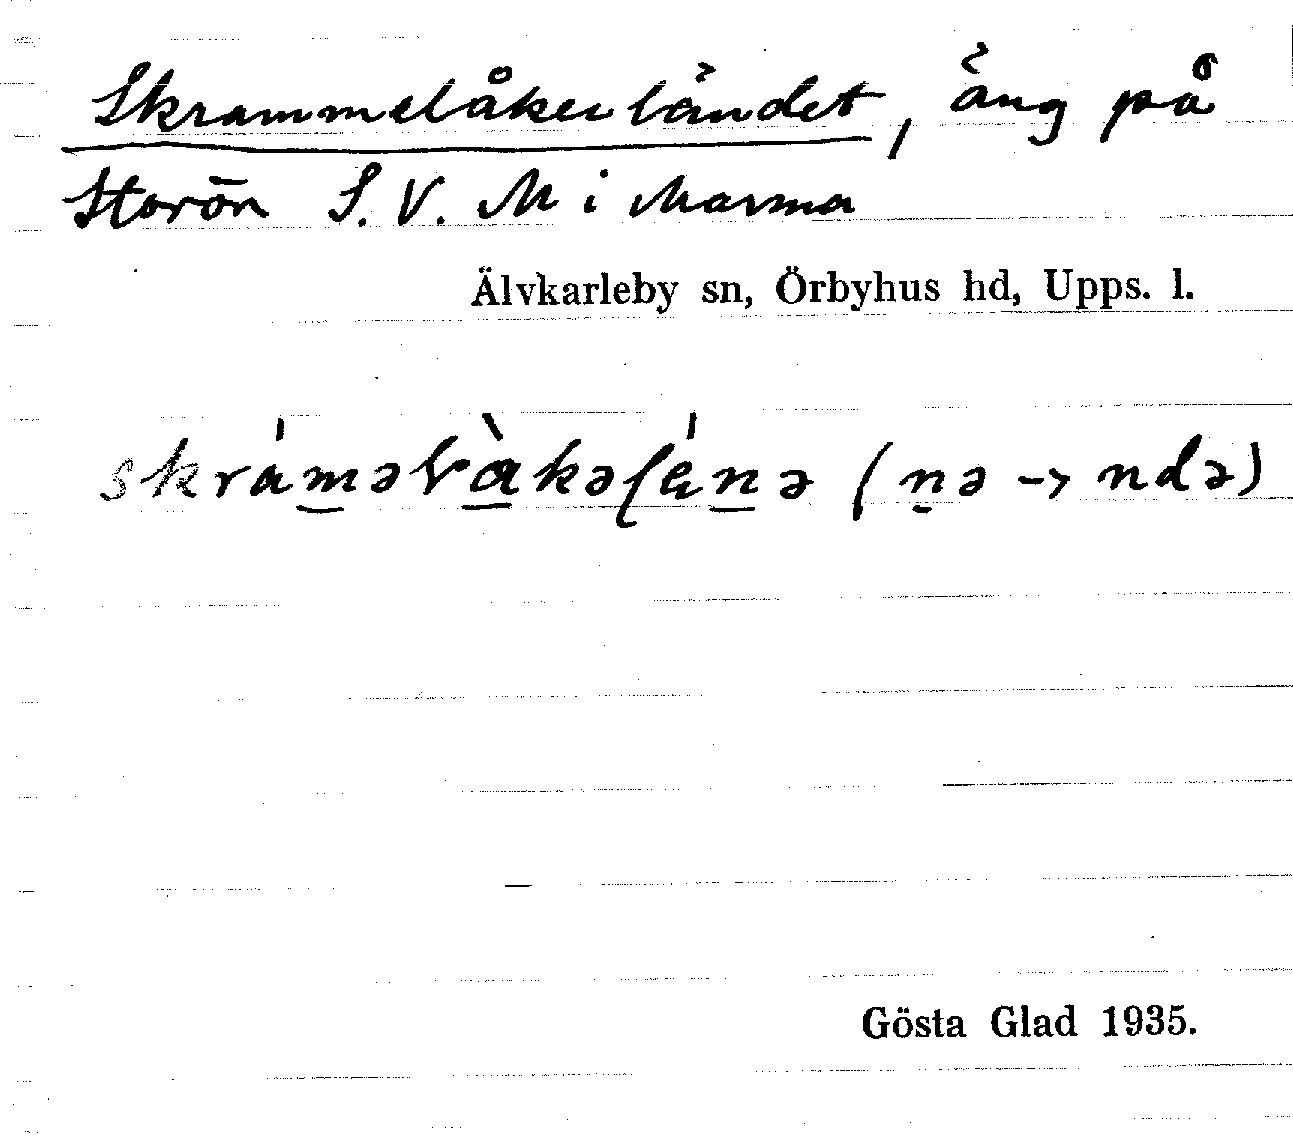 Skrammelåkerländet, äng på
Storön S. V. M i Marma
Älvkarleby sn, Örbyhus hd, Upps. l.
skráməlràkəlǽnə (nə → ndə)
Gösta Glad 1935.